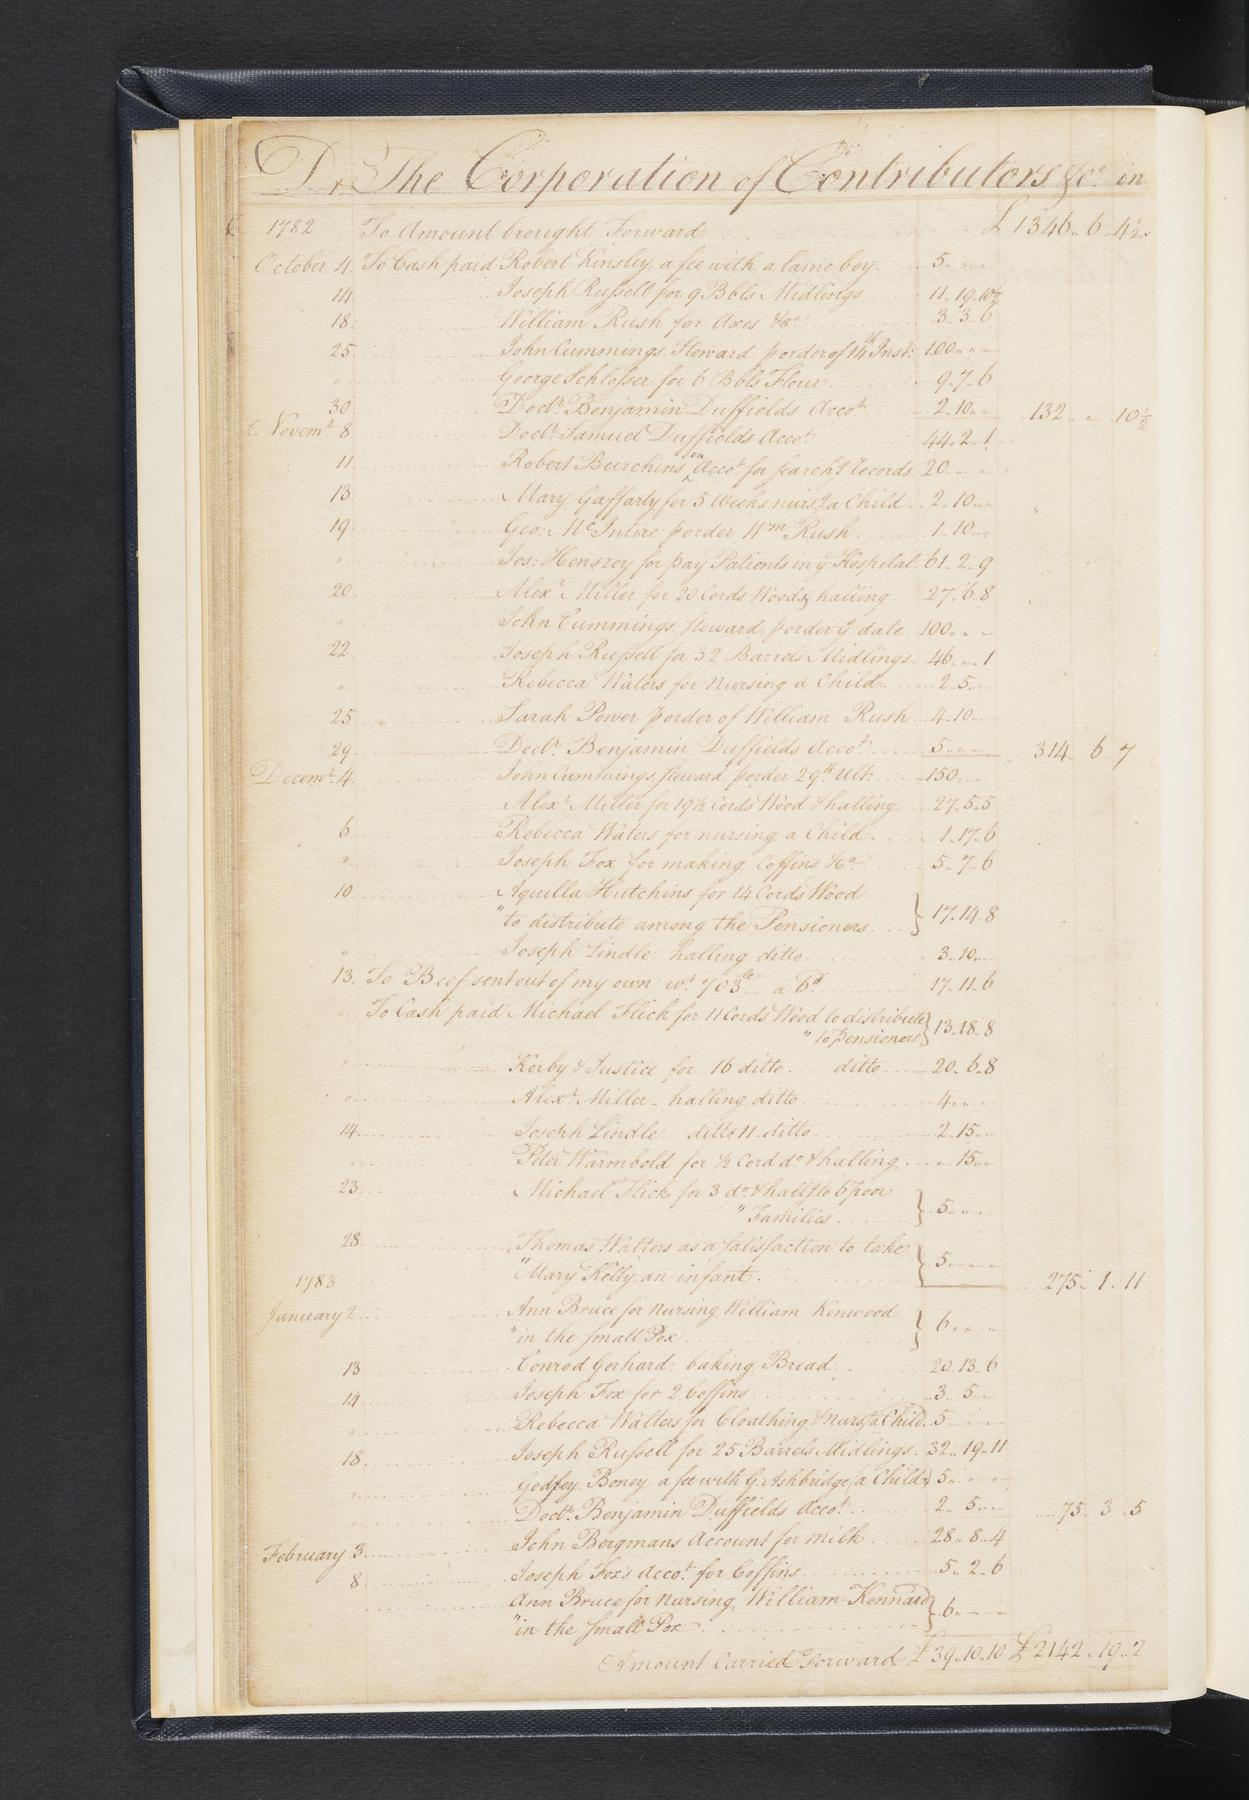 Dr The Corporation of Contributors &ca in
1782 To Amount brought Forward £ 1346 " 6 " 4½
October 4 To Cash paid Robert Kinsley, a fee with a lame boy 5 " " "
14 Joseph Russell for 9 Bbls Midlings 11 " 19 " 10½
18 William Rush for Axes &ca 3 " 3 " 6
25 John Cummings Steward p order of 14th Inst: 100 " " "
" George Schlosser for 6 Bbls Flour 9 " 7 " 6
30 Doctr Benjamin Duffields Accot 2 " 10 " " 132 " " 10½
Novemr 8 Doctr Samuel Duffields Accot 44 " 2 " 1
11 Robert Bearchins on Accot for search'g records 20 " " "
13 Mary Gaffarty for 5 Weeks nurs'g a Child 2 " 10 " "
19 Geo: McIntire p order Wm Rush 1 " 10 " "
" Jos: Henszey for pay Patients in ye Hospital 61 " 2 " 9
20 Alexr Miller for 20 Cords Wood & halling 27 " 6 " 8
" John Cummings, steward, p order ys date 100 " " "
22 Joseph Russell for 32 Barrels Midlings 46 " " 1
" Rebecca Waters for Nursing a Child 2 " 5 " "
25 Sarah Power p order of William Rush 4 " 10 " "
29 Doctr Benjamin Duffields Accot 5 " " " 314 " 6 " 7
Decemr 4 John Cummings, steward p order 29th Ult: 150 " "
Alexr Miller for 19½ Cords Wood & halling 27 " 5 " 5
6 Rebecca Waters for nursing a Child 1 " 17 " 6
" Joseph Fox for making Coffins &ca 5 " 7 " 6
10 Aquilla Hutchins for 14 Cords Wood
" to distribute among the Pensioners } 17 " 14 " 8
" Joseph Lindle halling ditto 3 " 10 " "
13 To Beef sent out of my own wt 703 lb a 6d 17 " 11 " 6
" To Cash paid Michael Flick for 11 Cords Wood to distribute
" to pensioners } 13 " 18 " 8
" Kerby & Justice for 16 ditto ditto 20 " 6 " 8
" Alexr Miller halling ditto 4 " " "
14 Joseph Lindle ditto 11 ditto 2 " 15 " "
" Peter Warmbold for ½ Cord do & halling " 15 " "
23 Michael Flick for 3 do & hall'g to 6 poor
" Families } 5 " " "
28 Thomas Watters as a satisfaction to take
" Mary Kelly, an infant } 5 " " "
1783 275 " 1 " 11
January 2 Ann Bruce for Nursing William Kenwood
" in the small Pox } 6 " " "
13 Conrod Gerhard: baking Bread 20 " 13 " 6
14 Joseph Fox for 2 Coffins 3 " 5 "
" Rebecca Walters for Cloathing & Nurs'g a Child 5 " " "
18 Joseph Russell for 25 Barrels Midlings 32 " 19 " 11
" Godfrey Boney a fee with G: Ashbridge (a Child) 5 " " "
" Doctr Benjamin Duffields Accot 2 " 5 " " 75 " 3 " 5
February 3 John Bergmans Account for milk 28 " 8 " 4
8 Joseph Fox's Accot for Coffins 5 " 2 " 6
Ann Bruce for Nursing William Kennard
" in the small Pox } 6 " " "
Amount Carried Forward £ 39 " 10 " 10 £ 2142 " 19 " 2